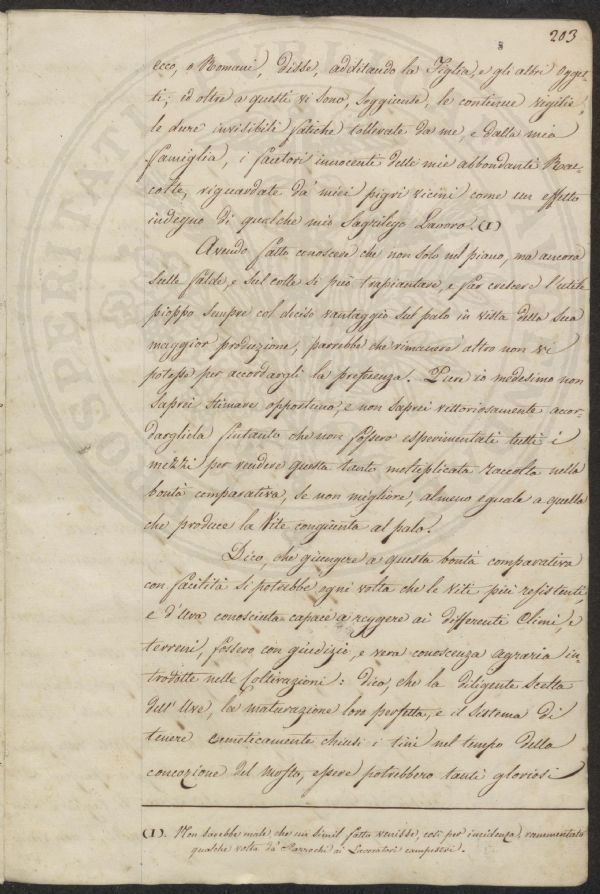 203
ecco, o Romani, disse, additando la Figlia, e gli altri Ogget-
ti; ed oltre a questi vi sono, soggiunse, le continue vigilie,
le dure invisibili fatiche tollerate da me, e dalla mia
famiglia, i fautori innocenti delle mie abbondanti Rac-
colte, riguardate da' miei pigri vicini come un effetto
indegno di qualche mio Sagrilego Lavoro. (1)
Avendo fatto conoscere che non solo nel piano, ma ancora
sulle falde, e sul colle si può trapiantare, e far crescere l'utile
pioppo sempre col deciso vantaggio sul palo in vista della sua
maggior produzione, parrebbe che rimanere altro non vi
potesse per accordargli la preferenza. Pure io medesimo non
saprei stimare opportuno, e non saprei vittoriosamente acor-
dargliela fintanto che non fossero esperimentati tutti i
mezzi per rendere questa tanto molteplicata raccolta nella
bontà comparativa, se non migliore, almeno eguale a quella
che produce la Vite congiunta al palo.
Dico, che giungere a questa bontà comparativa
con facilità si potrebbe ogni volta che le Viti più resistenti,
e d'Uva conosciuta capace a reggere ai differente Climi, e
terreni, fossero con giudizio, e vera conoscenza agraria in-
trodotte nelle Coltivazioni: dico, che la diligente Scelta
dell'Uve, la maturazione loro perfetta, e il sistema di
tenere ermeticamente chiusi i tini nel tempo della
concozione del mosto, essere potrebbero tanti gloriosi
(1). Non sarebbe male che un simil fatto venisse, così per incidenza, rammentato
qualche volta da' Parrochi ai Lavoratori campestri.